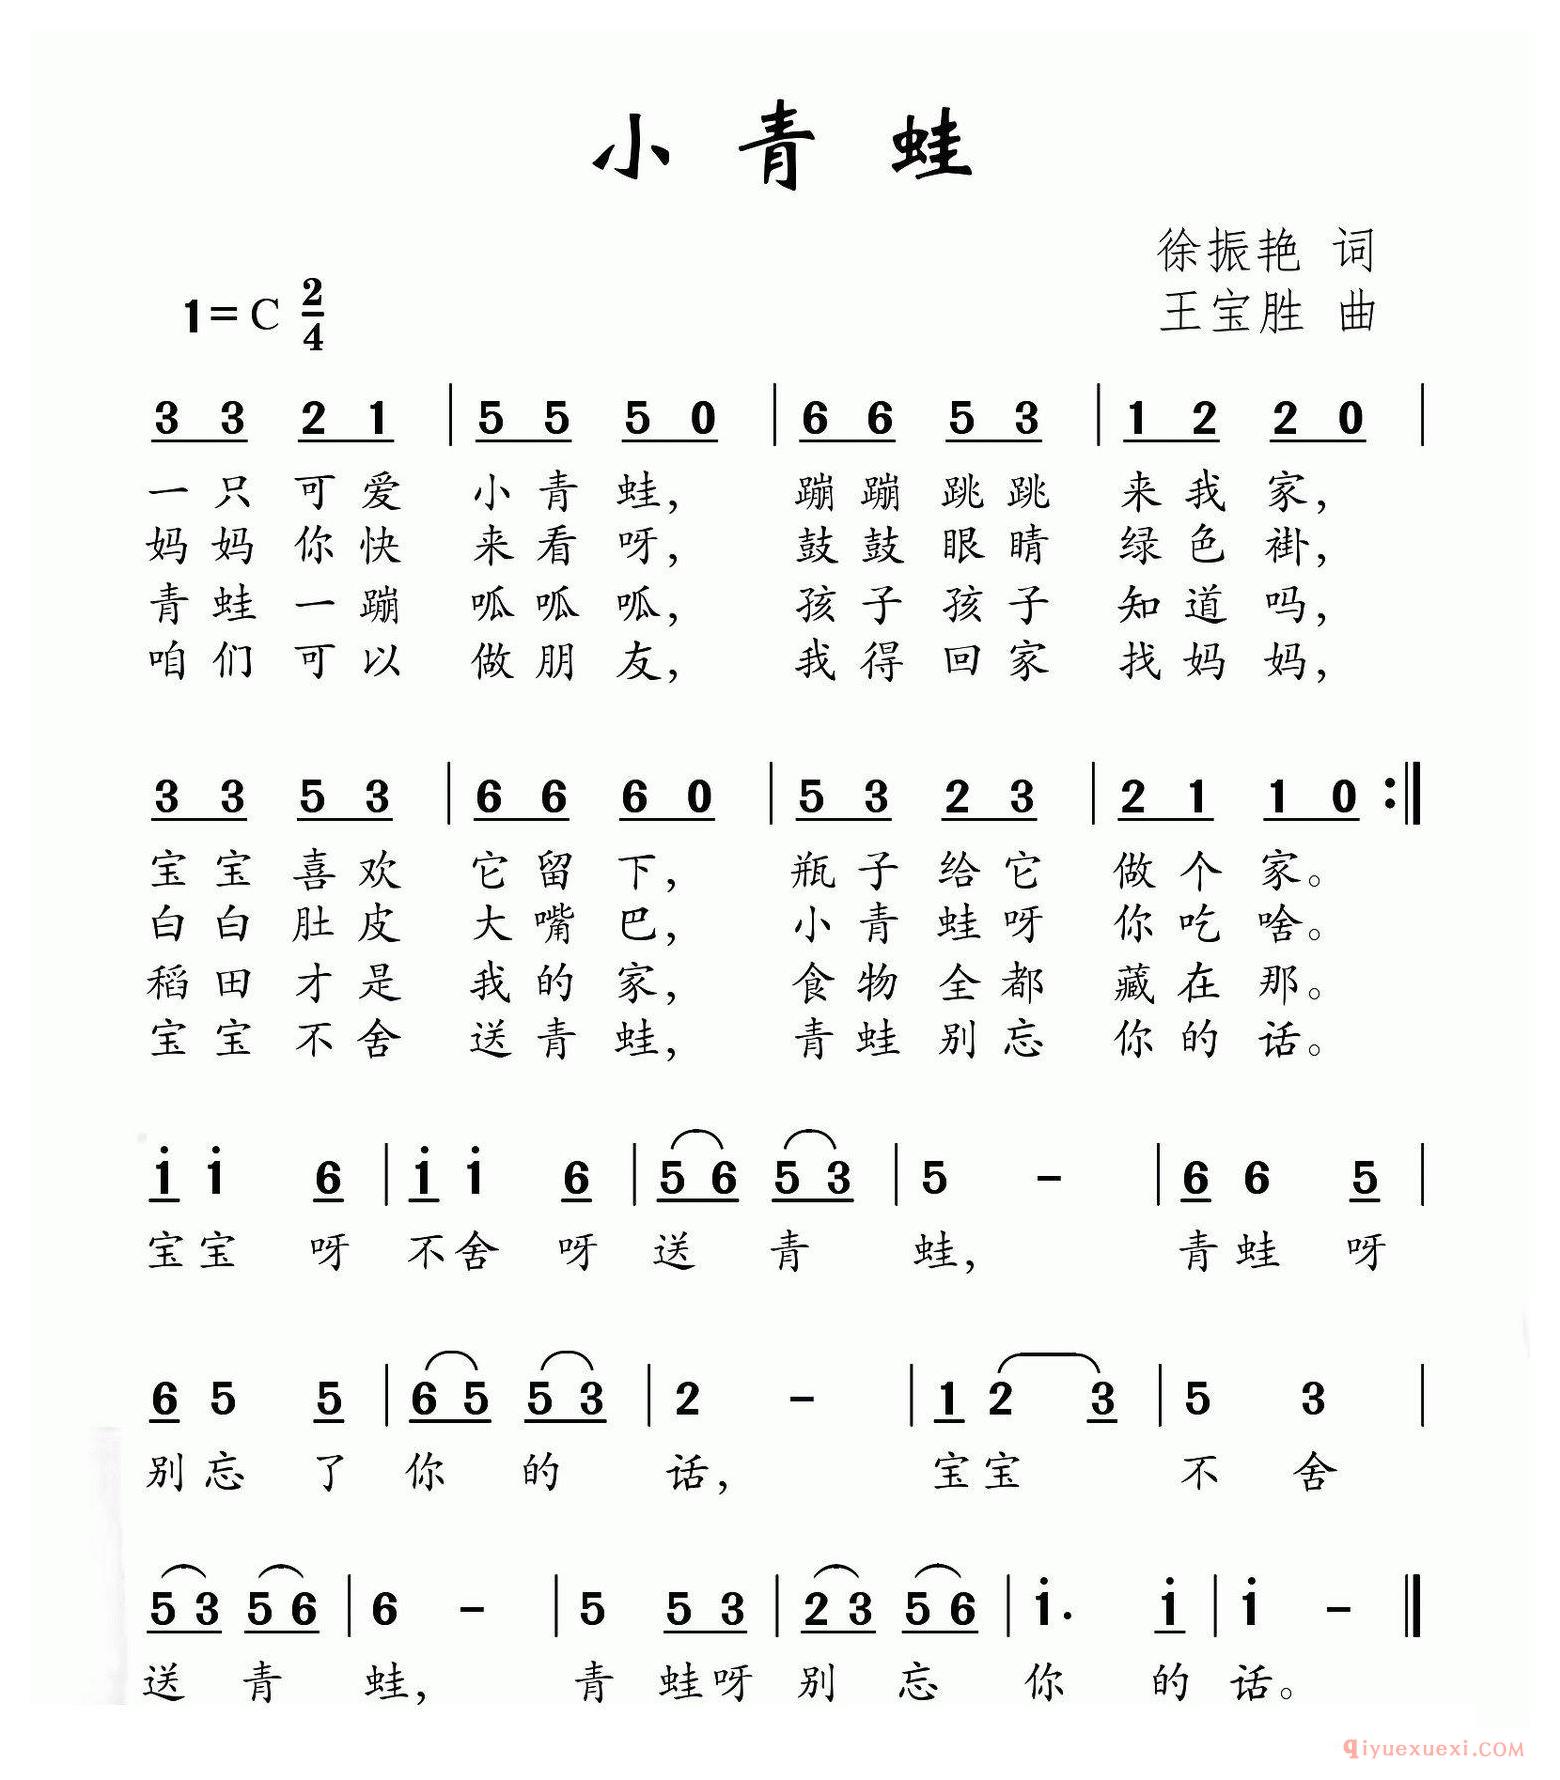 小青蛙
徐振艳 词
1=C 2/4 王宝胜 曲
3 3 2 1 | 5 5 5 0 | 6 6 5 3 | 1 2 2 0 |
一只可爱 小青蛙， 蹦蹦跳跳 来我家，
妈妈你快 来看呀， 鼓鼓眼睛 绿色褂，
青蛙一蹦 呱呱呱， 孩子孩子 知道吗，
咱们可以 做朋友， 我得回家 找妈妈，
3 3 5 3 | 6 6 6 0 | 5 3 2 3 | 2 1 1 0 :‖
宝宝喜欢 它留下， 瓶子给它 做个家。
白白肚皮 大嘴巴， 小青蛙呀 你吃啥。
稻田才是 我的家， 食物全都 藏在那。
宝宝不舍 送青蛙， 青蛙别忘 你的话。
i i 6 | i i 6 | 5 6 5 3 | 5 - | 6 6 5 |
宝宝 呀 不舍 呀 送 青 蛙， 青蛙 呀
6 5 5 | 6 5 5 3 | 2 - | 1 2 3 | 5 3 |
别忘 了 你 的 话， 宝宝 不 舍
5 3 5 6 | 6 - | 5 5 3 | 2 3 5 6 | i· i | i - ‖
送 青 蛙， 青 蛙呀 别 忘 你 的 话。
qiyuexuexi.COM